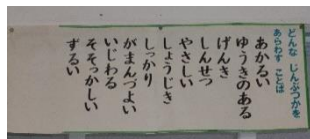 どんな じんぶつかを
あらわす ことば
あかるい
ゆうきのある
げんき
しんせつ
やさしい
しょうじき
しっかり
がまんづよい
いじわる
そそっかしい
ずるい